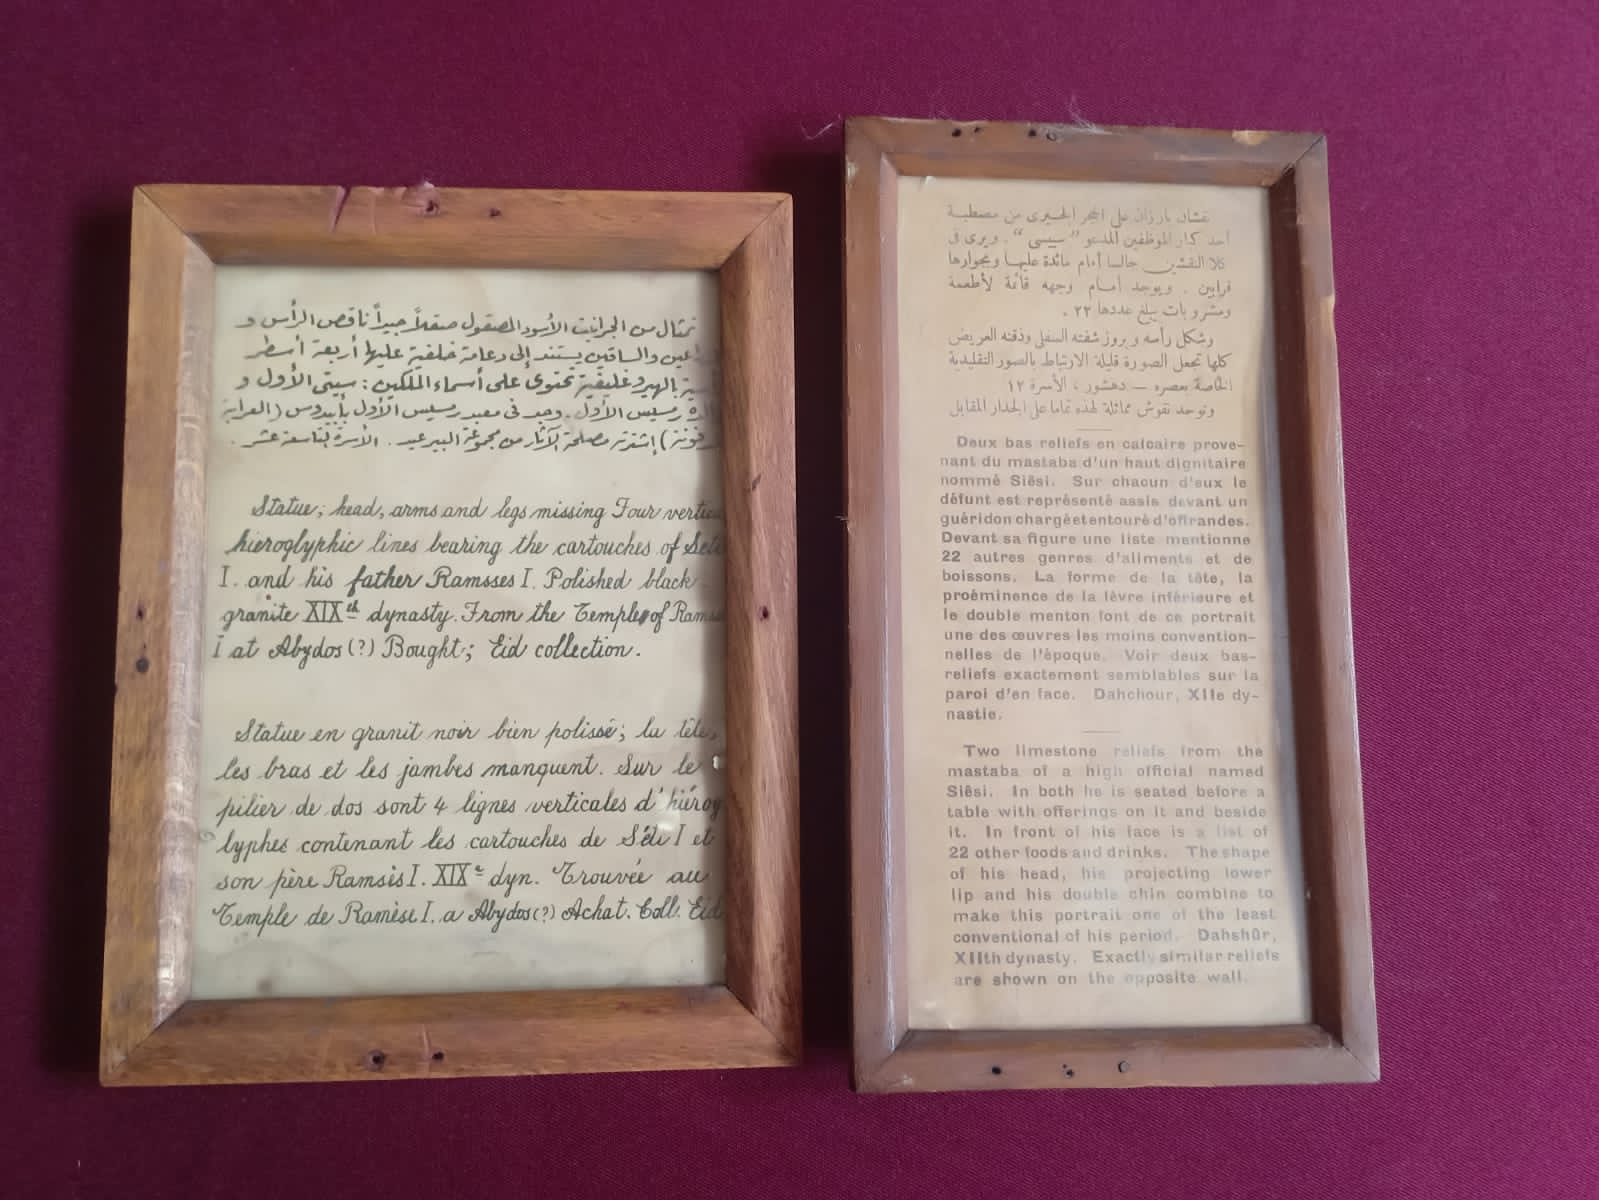 تمثال من الجرانيت الأسود المصقول صقلاً جيداً ناقص الرأس و
والساقين يستند إلى دعامة خلفية عليها أربعة أسطر
بالهيروغليفية تحتوى على أسماء الملكين : سيتى الأول و
رمسيس الأول . وجد فى معبد رمسيس الأول بأبيدوس (العرابة
إشترته مصلحة الآثار من مجموعة البير عيد . الأسرة التاسعة عشر .
Statue; head, arms and legs missing Four vertic
hieroglyphic lines bearing the cartouches of Seti
I. and his father Ramsses I. Polished black
granite XIXth dynasty. From the Temple of Rams
I at Abydos (?) Bought; Eid collection.
Statue en granit noir bien polissé; la tête,
les bras et les jambes manquent. Sur le
pilier de dos sont 4 lignes verticales d'hiérog
lyphes contenant les cartouches de Séti I et
son père Ramsis I. XIXe dyn. Trouvée au
Temple de Ramèse I. a Abydos (?) Achat. Coll. Eid
نقشان بارزان على الحجر الجيرى من مصطبة
أحد كبار الموظفين المدعو "سيسى" . ويرى فى
كلا النقشين جالسا أمام مائدة عليها وبجوارها
قرابين . ويوجد أمام وجهه قائمة لأطعمة
ومشروبات يبلغ عددها ٢٢ .
وشكل رأسه وبروز شفته السفلى وذقنه العريض
كلها تجعل الصورة قليلة الارتباط بالصور التقليدية
الخاصة بعصره — دهشور ، الأسرة ١٢
وتوجد نقوش مماثلة لهذه تماما على الجدار المقابل
Deux bas reliefs en calcaire prove-
nant du mastaba d'un haut dignitaire
nommé Siêsi. Sur chacun d'eux le
défunt est représenté assis devant un
guéridon chargé et entouré d'offrandes.
Devant sa figure une liste mentionne
22 autres genres d'aliments et de
boissons. La forme de la tête, la
proéminence de la lèvre inférieure et
le double menton font de ce portrait
une des œuvres les moins convention-
nelles de l'époque. Voir deux bas-
reliefs exactement semblables sur la
paroi d'en face. Dahchour, XIIe dy-
nastie.
Two limestone reliefs from the
mastaba of a high official named
Siêsi. In both he is seated before a
table with offerings on it and beside
it. In front of his face is a list of
22 other foods and drinks. The shape
of his head, his projecting lower
lip and his double chin combine to
make this portrait one of the least
conventional of his period. Dahshûr,
XIIth dynasty. Exactly similar reliefs
are shown on the opposite wall.